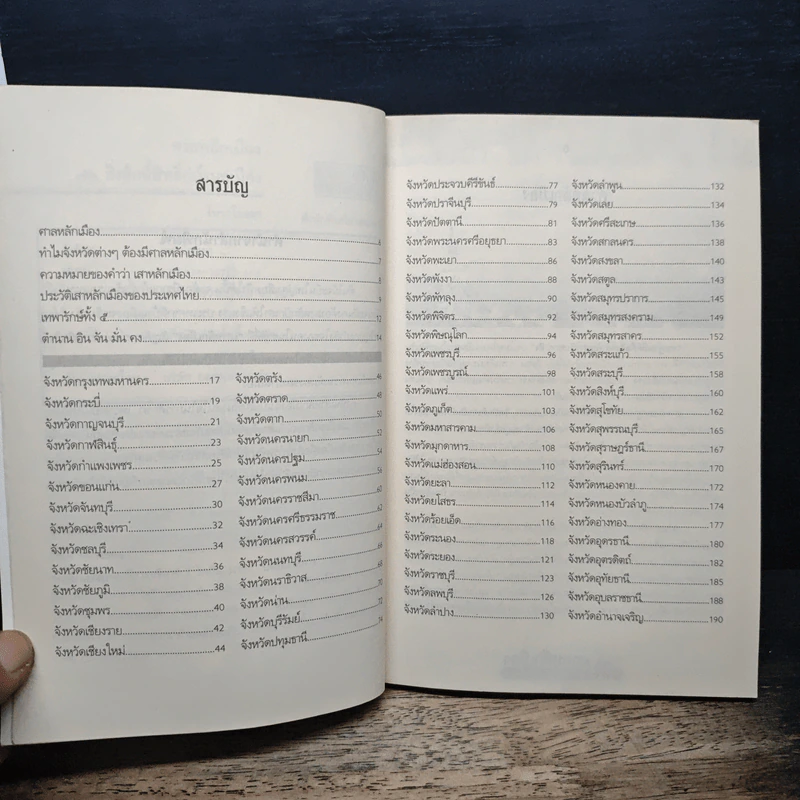 สารบัญ
ศาลหลักเมือง 6
ทำไมจังหวัดต่างๆ ต้องมีศาลหลักเมือง 7
ความหมายของคำว่า เสาหลักเมือง 8
ประวัติเสาหลักเมืองของประเทศไทย 9
เทพารักษ์ทั้ง ๕ 12
ตำนาน อิน จัน มั่น คง 14
จังหวัดกรุงเทพมหานคร 17
จังหวัดกระบี่ 19
จังหวัดกาญจนบุรี 21
จังหวัดกาฬสินธุ์ 23
จังหวัดกำแพงเพชร 25
จังหวัดขอนแก่น 27
จังหวัดจันทบุรี 30
จังหวัดฉะเชิงเทรา 32
จังหวัดชลบุรี 34
จังหวัดชัยนาท 36
จังหวัดชัยภูมิ 38
จังหวัดชุมพร 40
จังหวัดเชียงราย 42
จังหวัดเชียงใหม่ 44
จังหวัดตรัง 46
จังหวัดตราด 48
จังหวัดตาก 50
จังหวัดนครนายก 52
จังหวัดนครปฐม 54
จังหวัดนครพนม 56
จังหวัดนครราชสีมา 60
จังหวัดนครศรีธรรมราช 62
จังหวัดนครสวรรค์ 64
จังหวัดนนทบุรี 66
จังหวัดนราธิวาส 68
จังหวัดน่าน 70
จังหวัดบุรีรัมย์ 72
จังหวัดปทุมธานี 74
จังหวัดประจวบคีรีขันธ์ 77
จังหวัดปราจีนบุรี 79
จังหวัดปัตตานี 81
จังหวัดพระนครศรีอยุธยา 83
จังหวัดพะเยา 86
จังหวัดพังงา 88
จังหวัดพัทลุง 90
จังหวัดพิจิตร 92
จังหวัดพิษณุโลก 94
จังหวัดเพชรบุรี 96
จังหวัดเพชรบูรณ์ 98
จังหวัดแพร่ 101
จังหวัดภูเก็ต 103
จังหวัดมหาสารคาม 106
จังหวัดมุกดาหาร 108
จังหวัดแม่ฮ่องสอน 110
จังหวัดยะลา 112
จังหวัดยโสธร 114
จังหวัดร้อยเอ็ด 116
จังหวัดระนอง 118
จังหวัดระยอง 121
จังหวัดราชบุรี 123
จังหวัดลพบุรี 126
จังหวัดลำปาง 130
จังหวัดลำพูน 132
จังหวัดเลย 134
จังหวัดศรีสะเกษ 136
จังหวัดสกลนคร 138
จังหวัดสงขลา 140
จังหวัดสตูล 143
จังหวัดสมุทรปราการ 145
จังหวัดสมุทรสงคราม 149
จังหวัดสมุทรสาคร 152
จังหวัดสระแก้ว 155
จังหวัดสระบุรี 158
จังหวัดสิงห์บุรี 160
จังหวัดสุโขทัย 162
จังหวัดสุพรรณบุรี 165
จังหวัดสุราษฎร์ธานี 167
จังหวัดสุรินทร์ 170
จังหวัดหนองคาย 172
จังหวัดหนองบัวลำภู 174
จังหวัดอ่างทอง 177
จังหวัดอุดรธานี 180
จังหวัดอุตรดิตถ์ 182
จังหวัดอุทัยธานี 185
จังหวัดอุบลราชธานี 188
จังหวัดอำนาจเจริญ 190